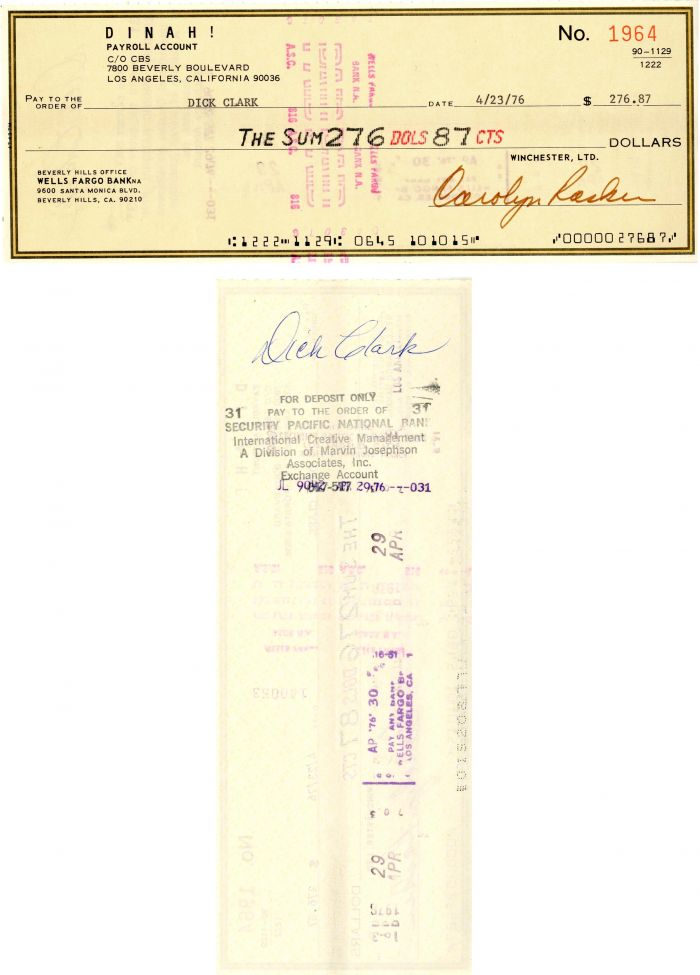 DINAH!
PAYROLL ACCOUNT
C/O CBS
7800 BEVERLY BOULEVARD
LOS ANGELES, CALIFORNIA 90036
No. 1964
90-1129
1222
PAY TO THE
ORDER OF DICK CLARK DATE 4/23/76 $ 276.87
THE SUM 276 DOLS 87 CTS DOLLARS
WINCHESTER, LTD.
BEVERLY HILLS OFFICE
WELLS FARGO BANK NA
9600 SANTA MONICA BLVD.
BEVERLY HILLS, CA. 90210
⑆1222⑉1129⑆ 0645 101015⑈ ⑇0000027687⑇
Dick Clark
FOR DEPOSIT ONLY
31 PAY TO THE ORDER OF 31
SECURITY PACIFIC NATIONAL BANK
International Creative Management
A Division of Marvin Josephson
Associates, Inc.
Exchange Account
29
APR
AP '76 30
PAY ANY BANK
WELLS FARGO
LOS ANGELES, CA
29
APR